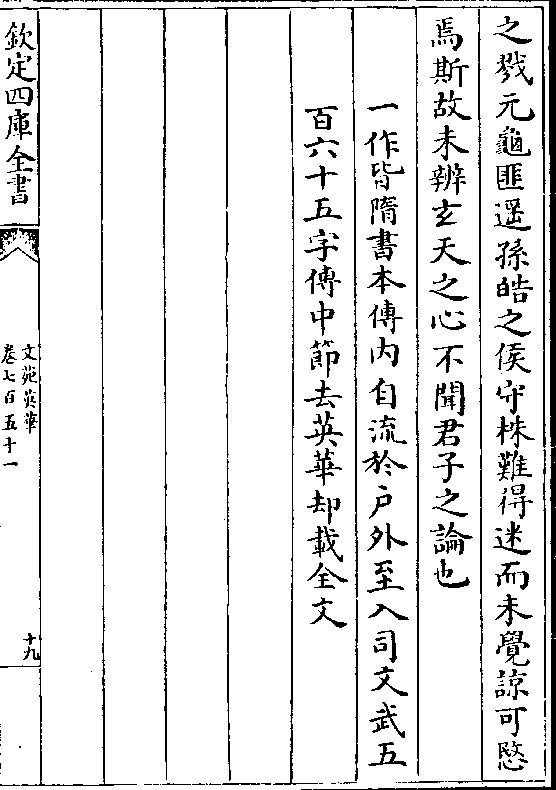 之戮元龜匪遥孫皓之侯守株難得迷而未覺諒可愍
焉斯故未辨玄天之心不聞君子之論也
一作皆隋書本傳内自流於户外至入司文武五
百六十五字傳中節去英華却載全文
欽定四庫全書
文苑英華
卷七百五十一
十九